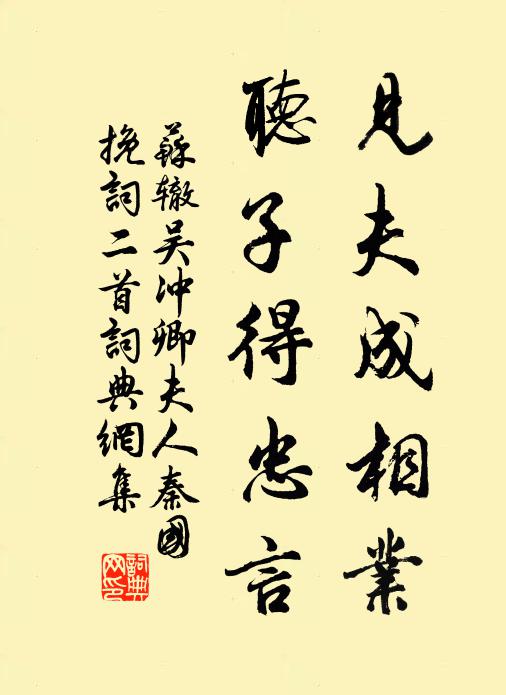 見夫成相業
聽子得忠言
蘇辙吴冲卿夫人秦國
挽詞二首詞典網集
詞典网印